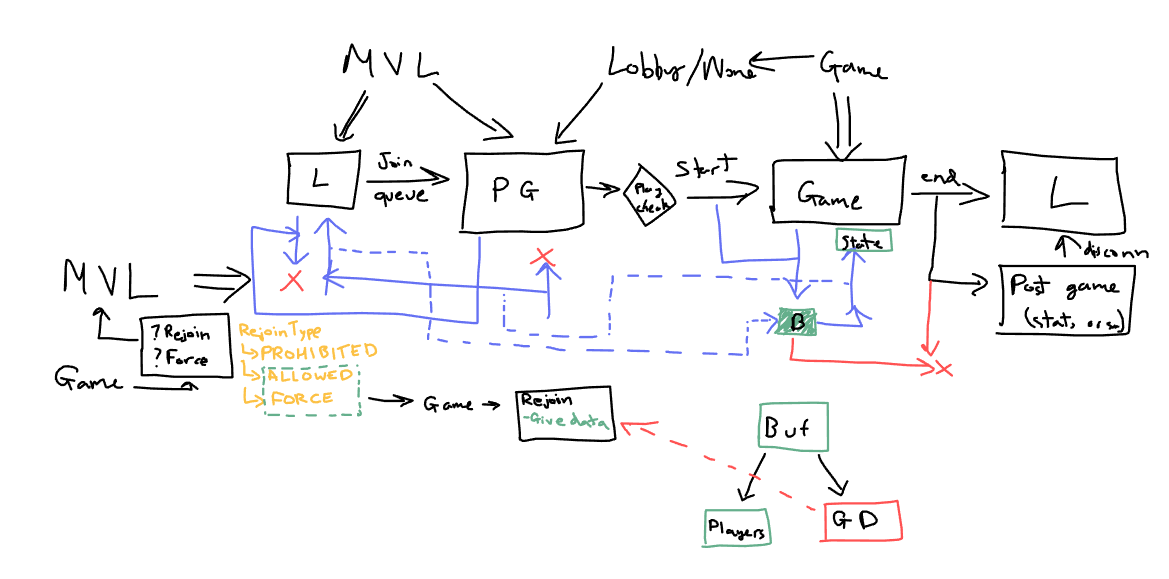 MVL
Lobby/None
Game
L
Join
queue
PG
Play
check
Start
Game
end
L
State
disconn
X
X
MVL
Post game
(stat, or so)
B
? Rejoin
? Force
RejoinType
PROHIBITED
ALLOWED
FORCE
X
Game
Game
Rejoin
-Give data
Buf
Players
GD